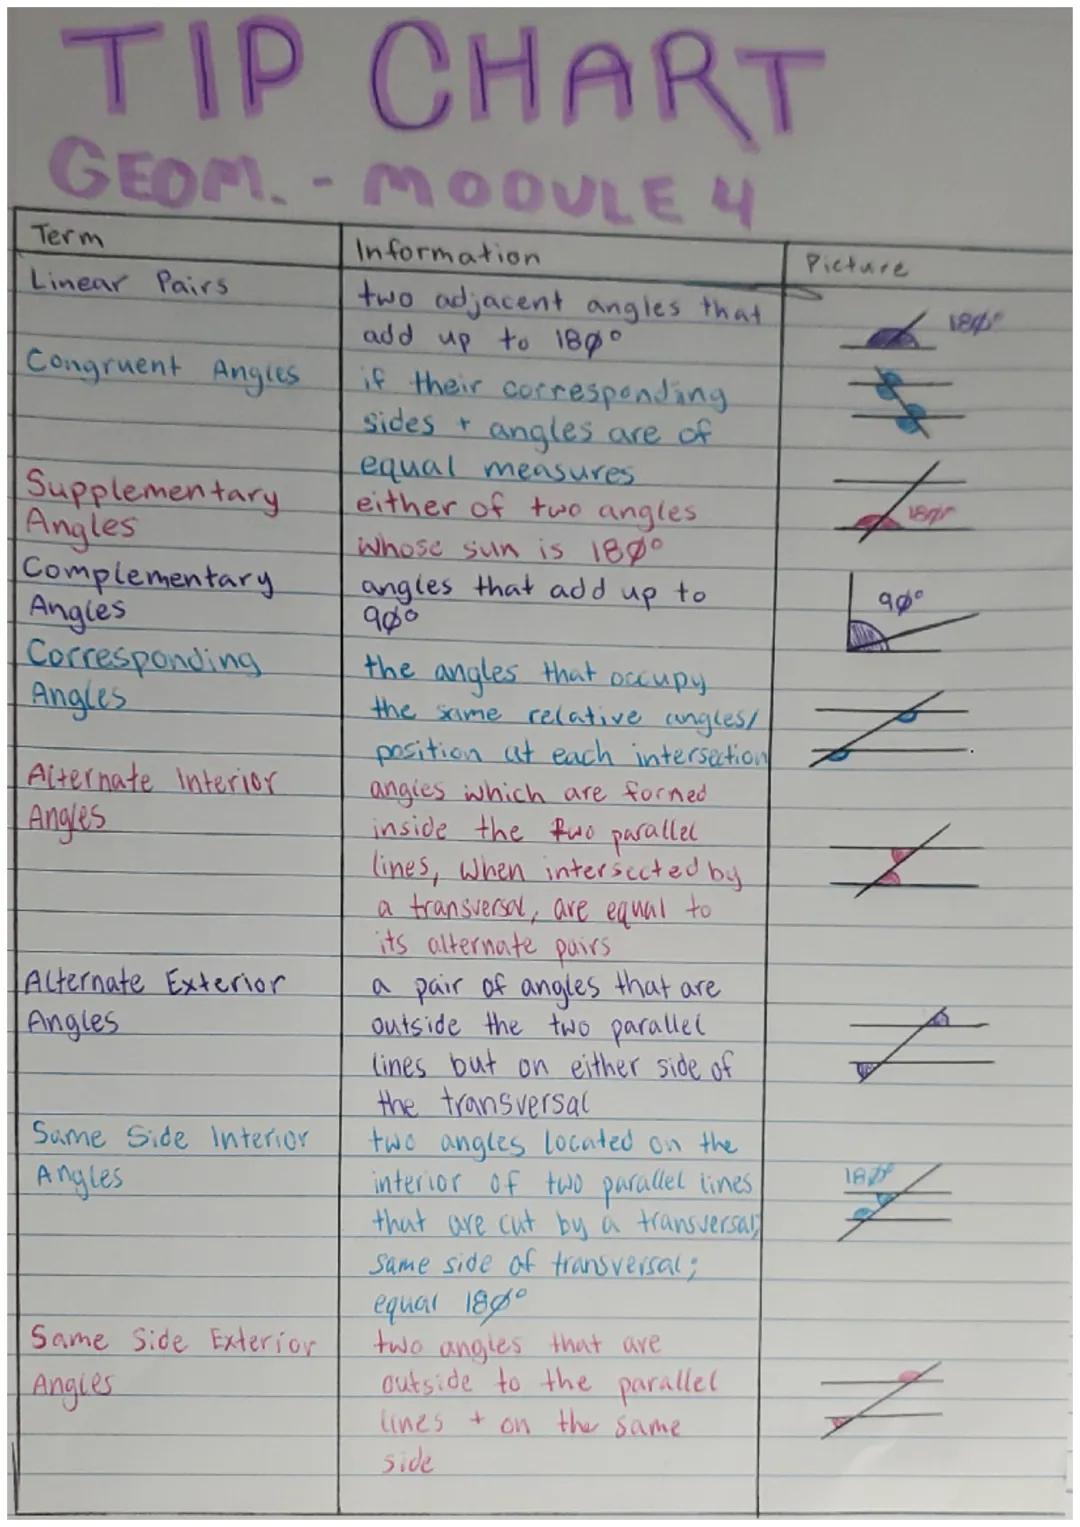 TIP CHART
GEOM. - MODULE 4
Term
Information
Picture
Linear Pairs
two adjacent angles that
add up to 180°
180°
Congruent Angles
if their corresponding
sides + angles are of
equal measures
Supplementary
Angles
either of two angles
whose sun is 180°
180°
Complementary
Angles
angles that add up to
90°
90°
Corresponding
Angles
the angles that occupy
the same relative angles/
position at each intersection
Alternate Interior
Angles
angles which are formed
inside the two parallel
lines, when intersected by
a transversal, are equal to
its alternate pairs
Alternate Exterior
Angles
a pair of angles that are
outside the two parallel
lines but on either side of
the transversal
Same Side Interior
Angles
two angles located on the
interior of two parallel lines
that are cut by a transversal;
same side of transversal;
equal 180°
180°
Same Side Exterior
Angles
two angles that are
outside to the parallel
lines + on the same
side